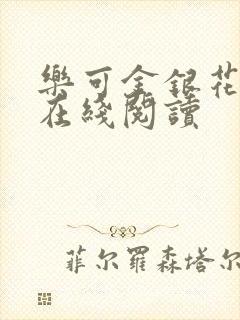 樂可金銀花
在綫閱讀
菲尔羅森塔尔